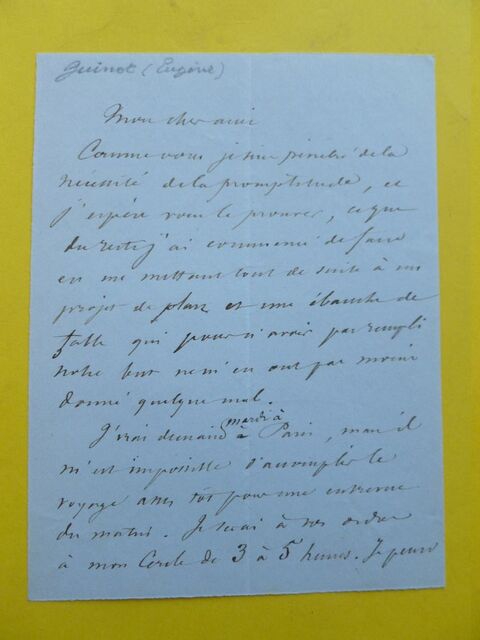 Guinot (Eugène)
Mon cher ami
Comme vous je suis pénétré de la
nécessité de la promptitude, et
j'espère vous le prouver, ce que
du reste j'ai commencé de faire
en me mettant tout de suite à un
projet de plan et une ébauche de
table qui pour n'avoir pas rempli
notre but ne m'en ont pas moins
donné quelque mal.
J'irai demain mardi à Paris, mais il
m'est impossible d'accomplir le
voyage assez tôt pour une entrevue
du matin. Je serai à vos ordres
à mon Cercle de 3 à 5 heures. Je